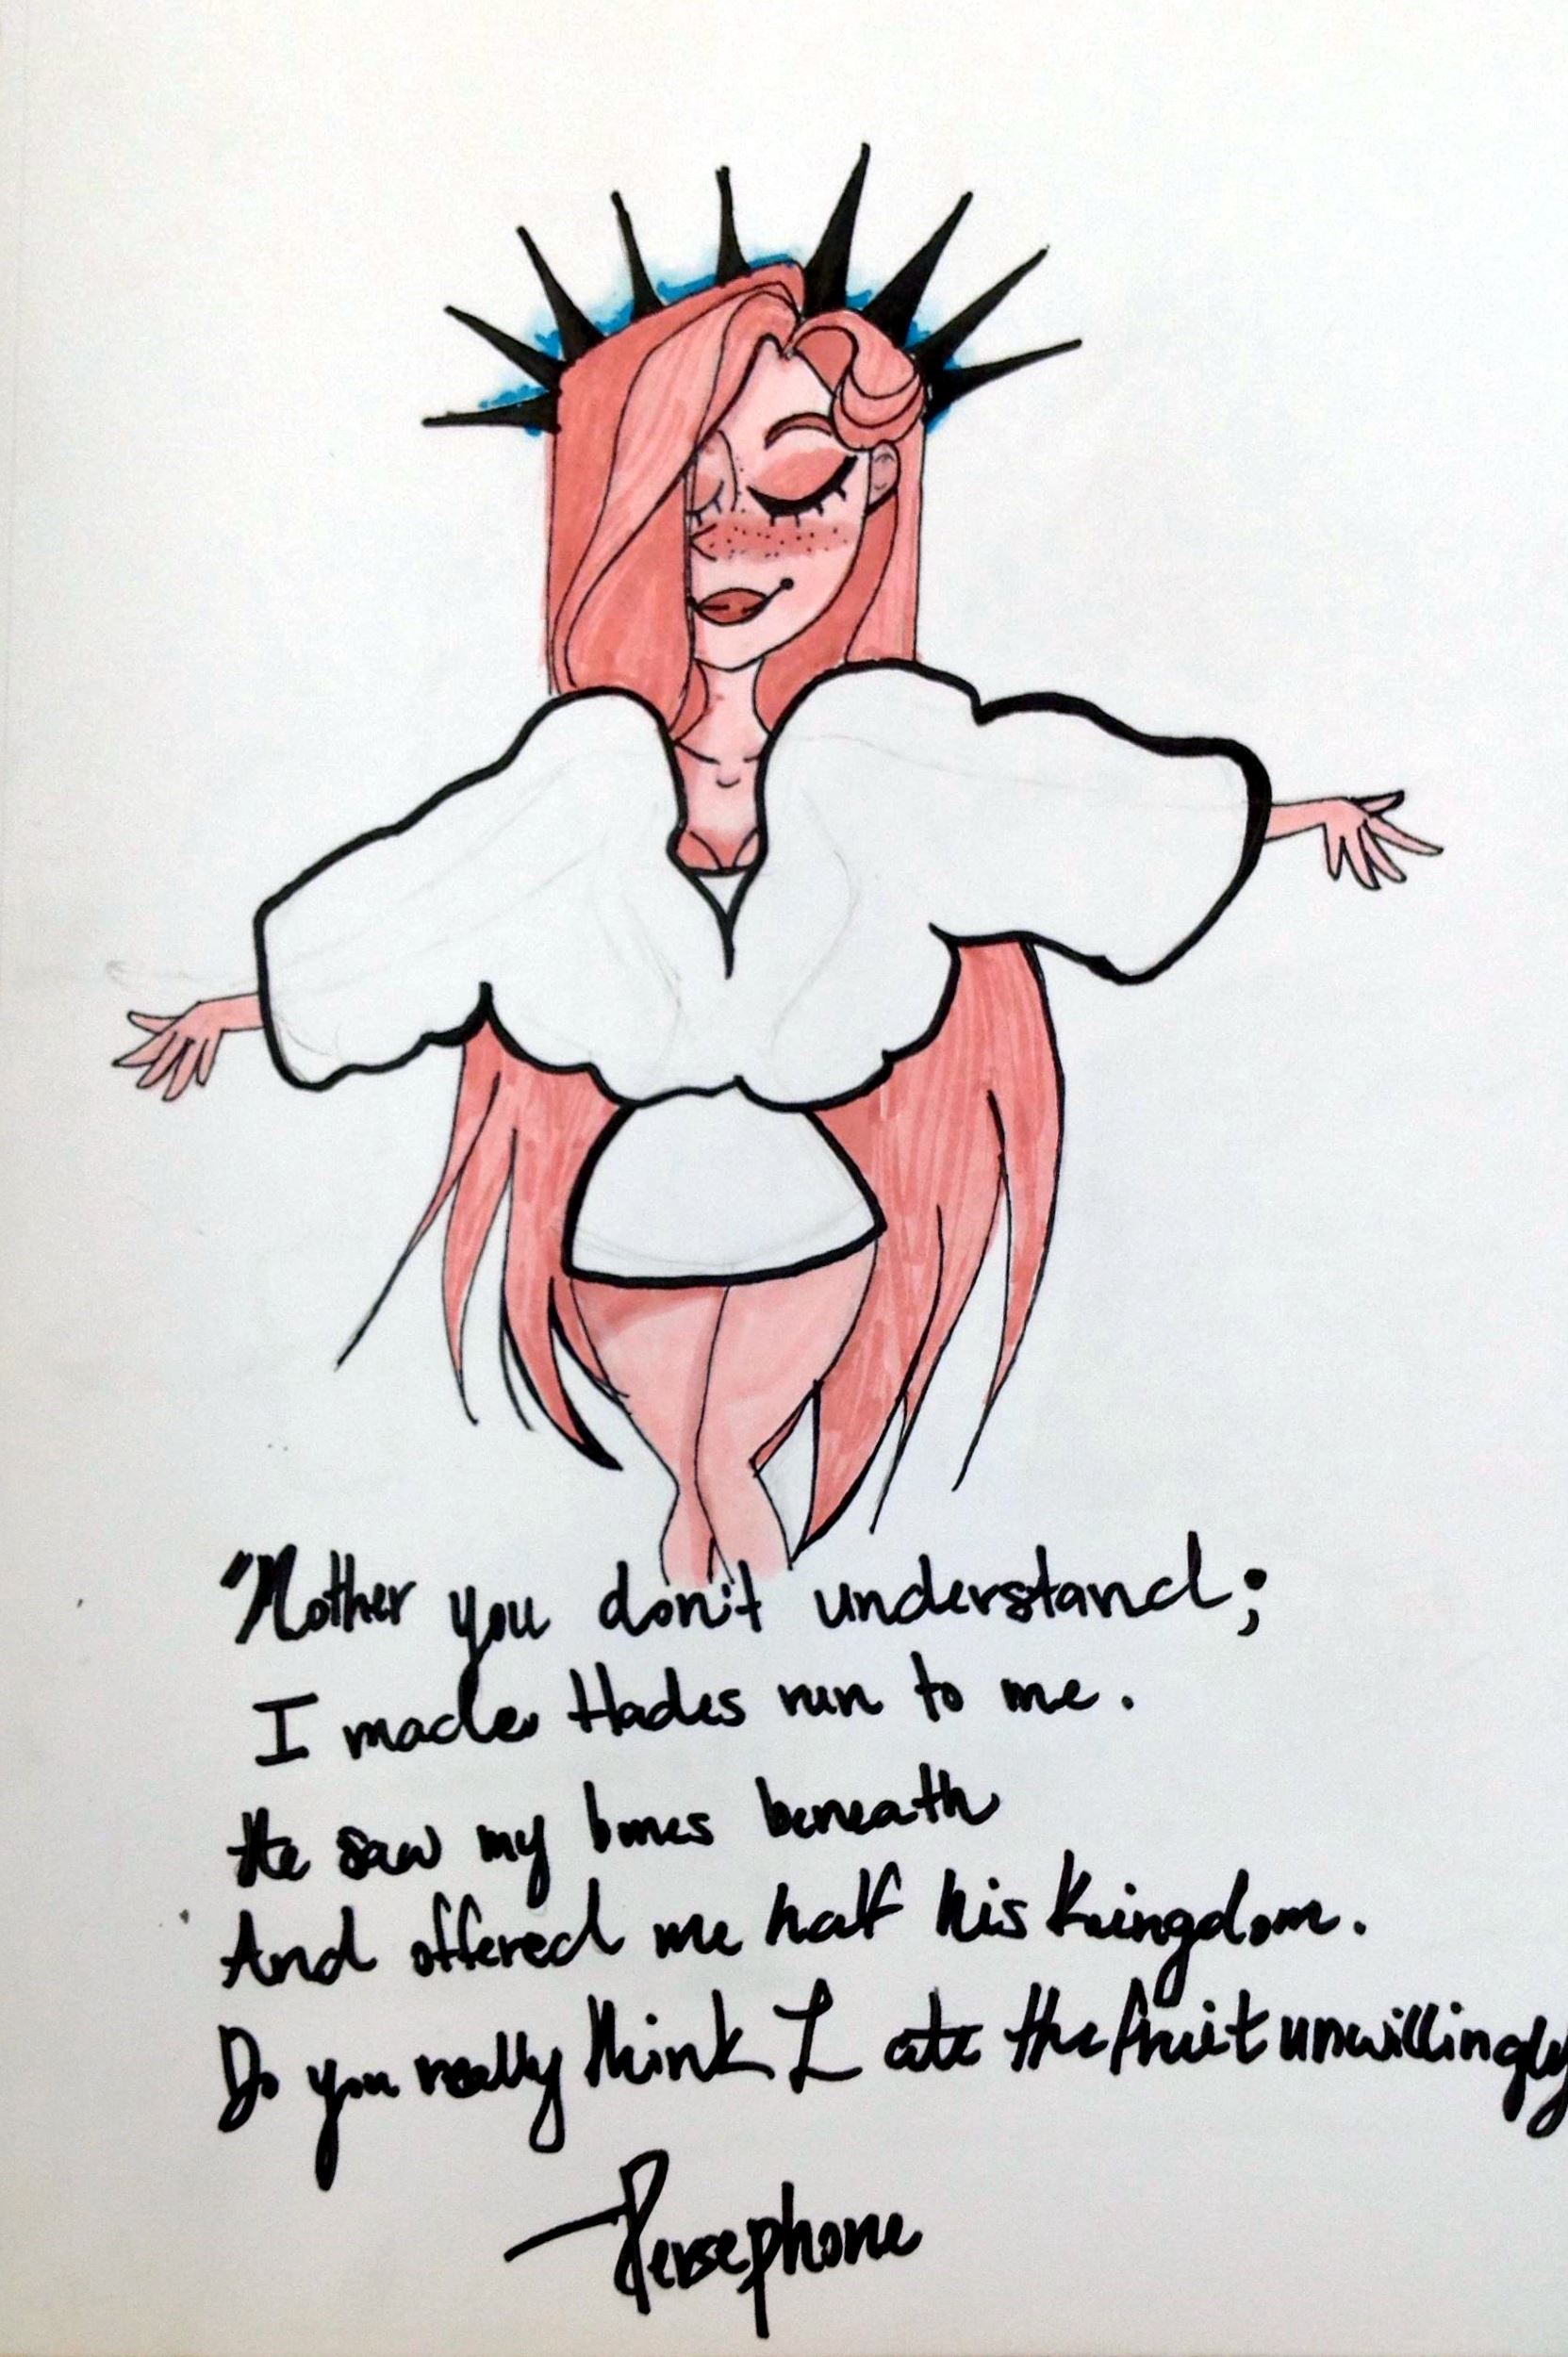 "Mother you don't understand;
I made Hades run to me.
He saw my bones beneath
And offered me half his Kingdom.
Do you really think I ate the fruit unwillingly
—Persephone